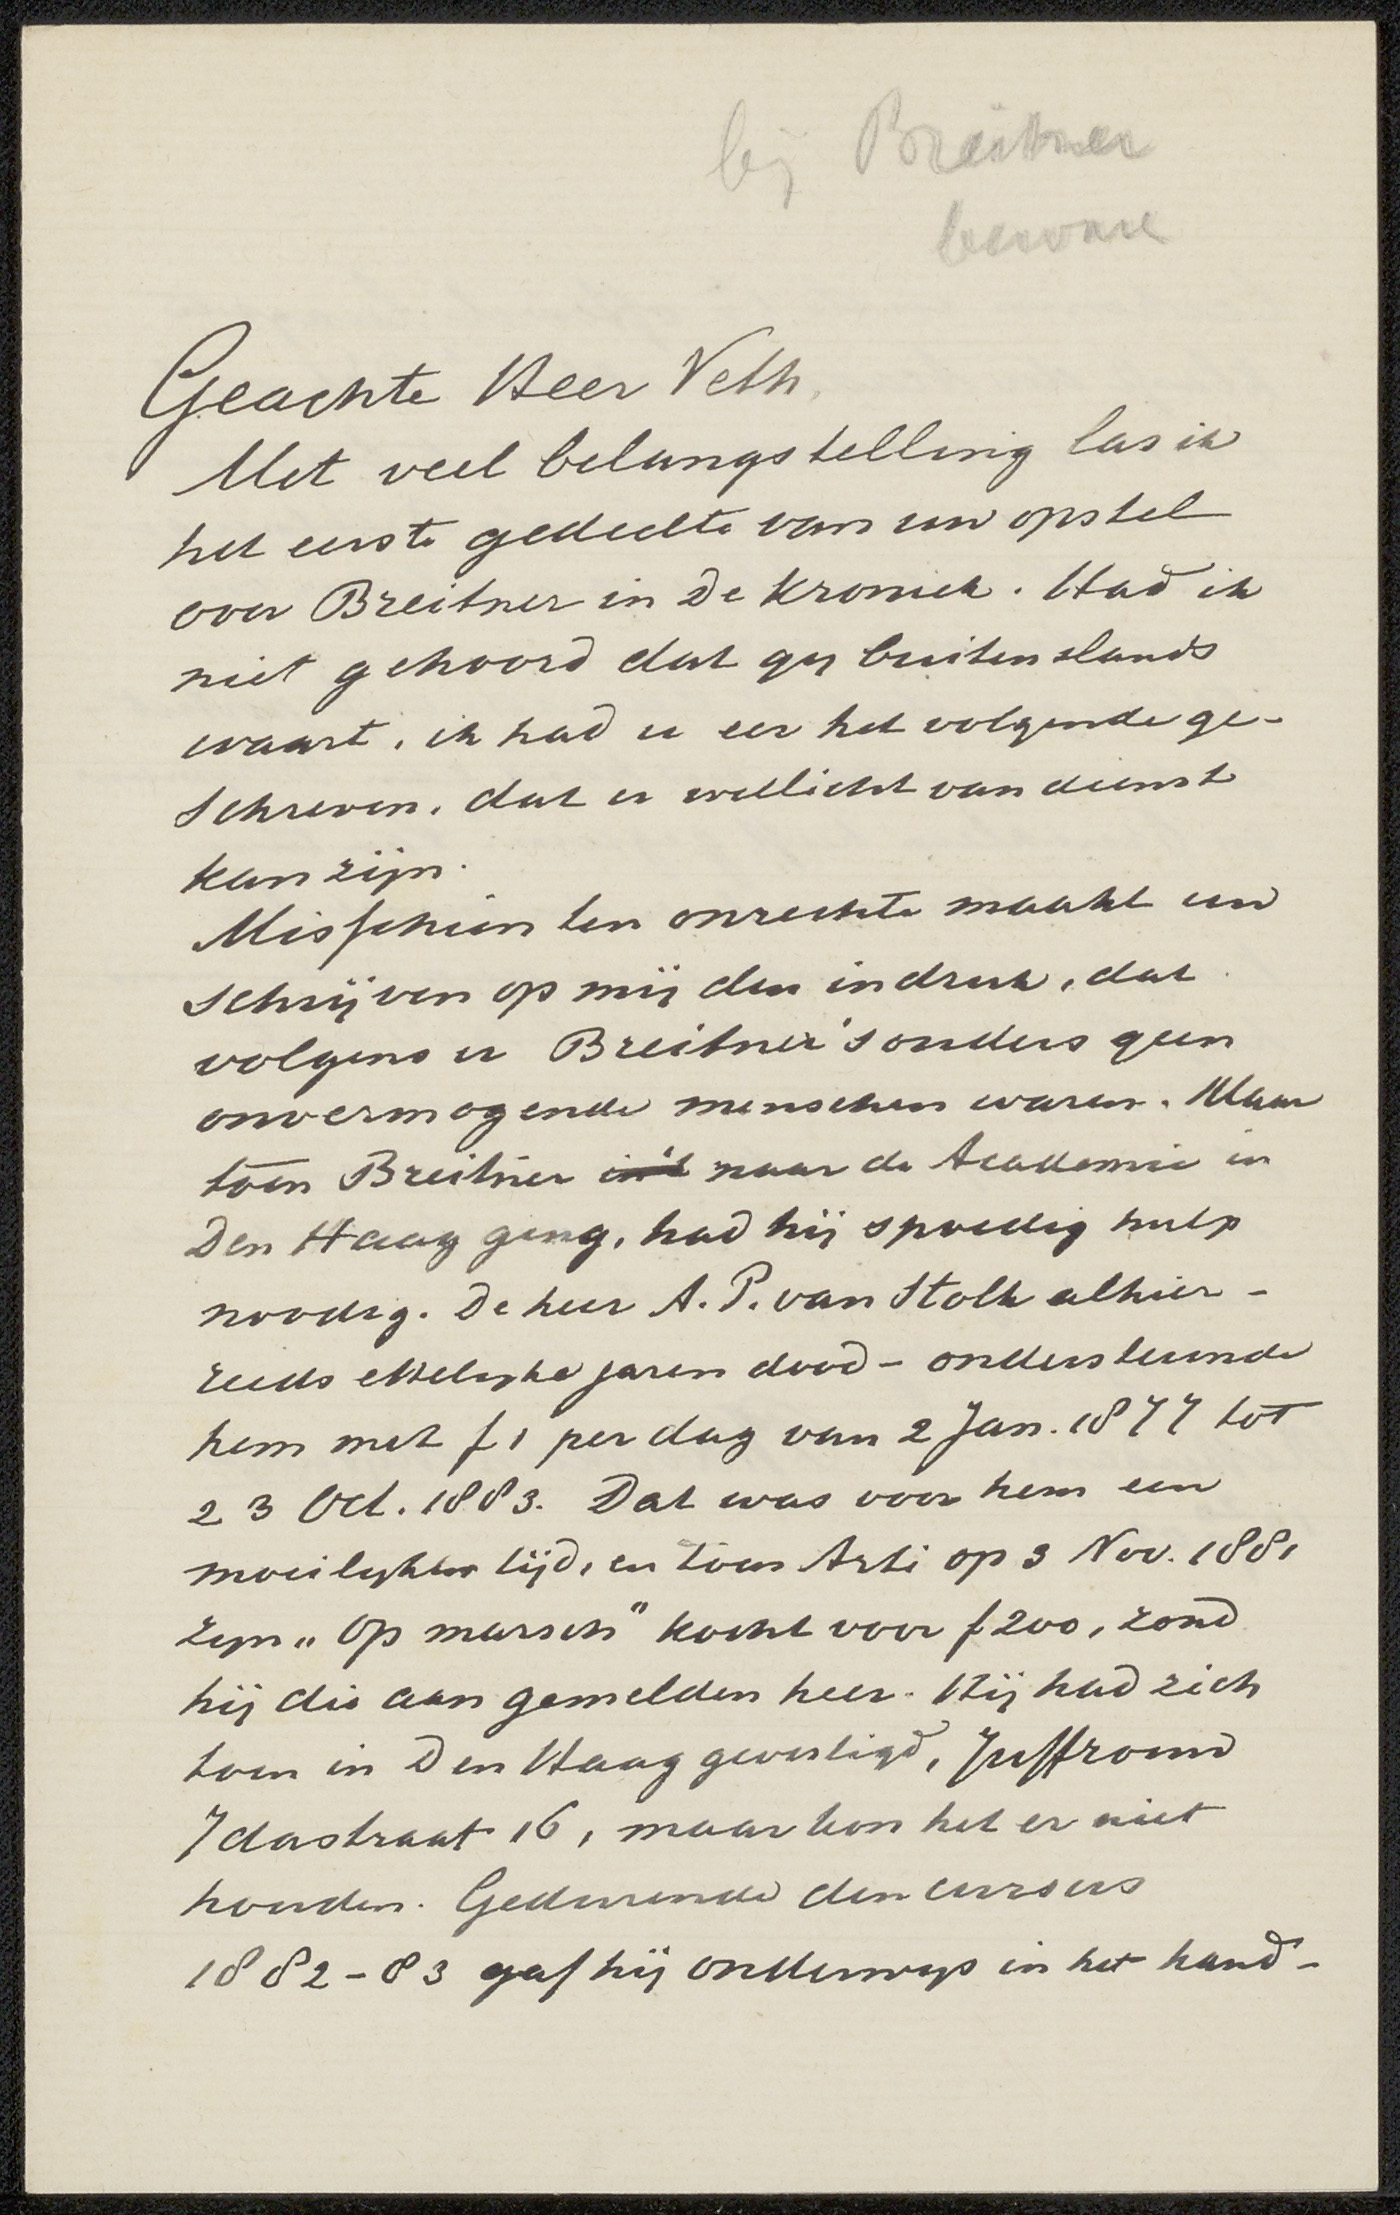 bij Breitner
beware
Geachte Heer Veth,
Met veel belangstelling las ik
het eerste gedeelte van uw opstel
over Breitner in De Kroniek. Had ik
niet gehoord dat gij buitenslands
waart, ik had u eer het volgende ge-
schreven, dat u wellicht van dienst
kan zijn.
Misschien ten onrechte maakt uw
schrijven op mij den indruk, dat
volgens u Breitner's ouders geen
onvermogende menschen waren. Maar
toen Breitner in't naar de Academie in
Den Haag ging, had hij spoedig hulp
noodig. De heer A. P. van Stolk alhier -
reeds ettelijke jaren dood - ondersteunde
hem met f 1 per dag van 2 Jan. 1877 tot
23 Oct. 1883. Dat was voor hem een
moeilijken tijd, en toen Arti op 3 Nov. 1881
zijn „Op marsch" kocht voor f 200, zond
hij die aan gemelden heer. Hij had zich
toen in Den Haag gevestigd, Juffrouw
Idastraat 16, maar kon het er niet
houden. Gedurende den cursus
1882-83 gaf hij onderwijs in het hand-